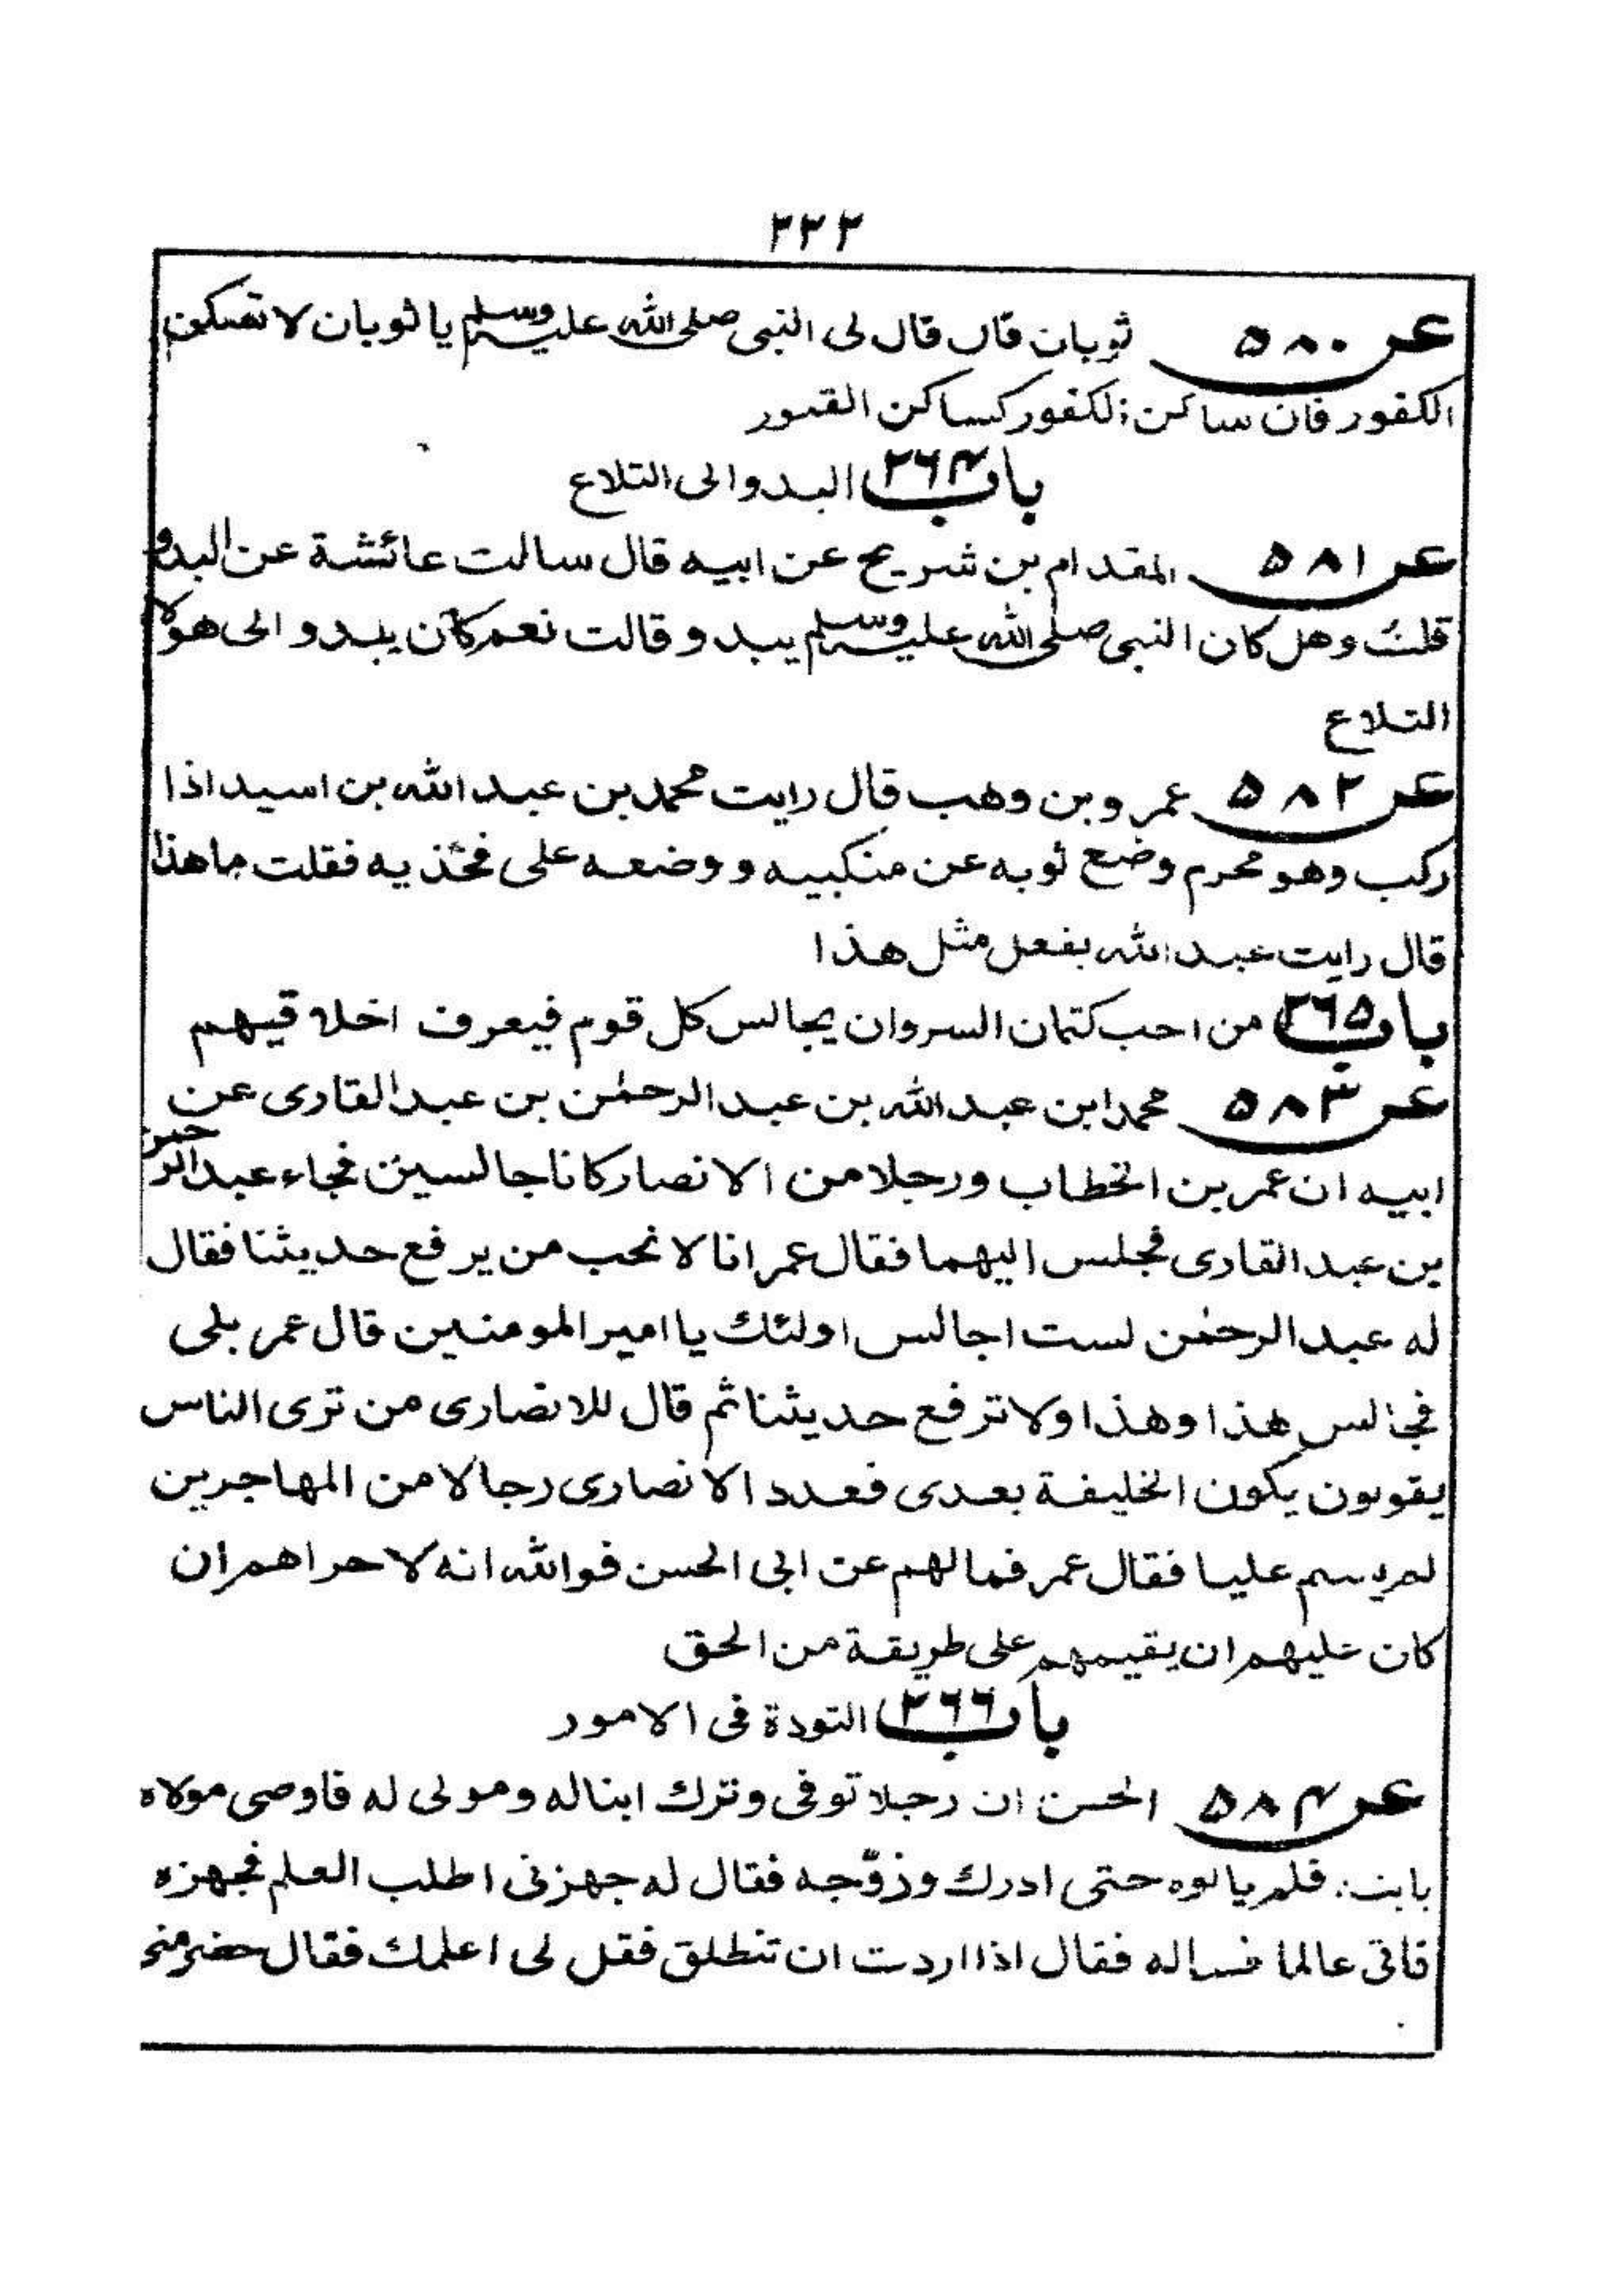 ۲۲۲
عن ۵۸۰ ثوبان قال قال لی النبی صلی اللہ علیہ وسلم یا ثوبان لا تسکن
الکفور فان ساکن الکفور کساکن القبور
باب ۲۶۴ البدو الی التلاع
عن ۵۸۱ المقدام بن شریح عن ابیہ قال سالت عائشة عن البدو
قلتُ وھل کان النبی صلی اللہ علیہ وسلم یبدو قالت نعم کان یبدو الی ھولا
التلاع
عن ۵۸۲ عمرو بن وھب قال رایت محمد بن عبد اللہ بن اسید اذا
رکب وھو محرم وضع ثوبہ عن منکبیہ و وضعہ علی فخذیہ فقلت ما ھذا
قال رایت عبد اللہ یفعل مثل ھذا
باب ۲۶۵ من احب کتمان السر وان یجالس کل قوم فیعرف اخلاقیھم
عن ۵۸۳ محمد ابن عبد اللہ بن عبد الرحمٰن بن عبد القاری عن
ابیہ ان عمر بن الخطاب ورجلا من الانصار کانا جالسین فجاء عبد الرحمن
بن عبد القاری فجلس الیھما فقال عمر انا لا نحب من یرفع حدیثنا فقال
لہ عبد الرحمٰن لست اجالس اولئك یا امیر المومنین قال عمر بلی
فجالس ھذا وھذا ولا ترفع حدیثنا ثم قال للانصاری من تری الناس
یقولون یکون الخلیفة بعدی فعدد الانصاری رجالا من المھاجرین
لم یسم علیا فقال عمر فما لھم عن ابی الحسن فو اللہ انہ لا حراھم ان
کان علیھم ان یقیمھم علی طریقة من الحق
باب ۲۶۶ التودة فی الامور
عن ۵۸۴ الحسن ان رجلا توفی وترك ابنا لہ ومولی لہ فاوصی مولاہ
بابنہ فلم یالوہ حتی ادرك وزوّجہ فقال لہ جھزنی اطلب العلم فجھزہ
فاتی عالما فسالہ فقال اذا اردت ان تنطلق فقل لی اعلمك فقال حضر منی